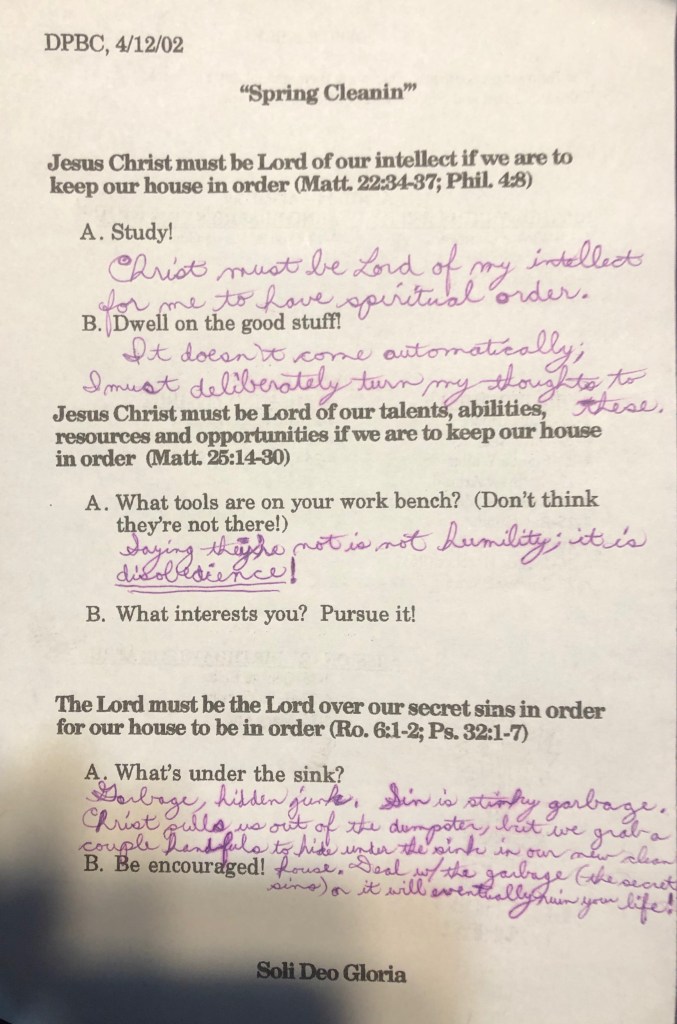 DPBC, 4/12/02
“Spring Cleanin’”
Jesus Christ must be Lord of our intellect if we are to
keep our house in order (Matt. 22:34-37; Phil. 4:8)
A. Study!
Christ must be Lord of my intellect
for me to have spiritual order.
B. Dwell on the good stuff!
It doesn't come automatically;
I must deliberately turn my thoughts to
these.
Jesus Christ must be Lord of our talents, abilities,
resources and opportunities if we are to keep our house
in order (Matt. 25:14-30)
A. What tools are on your work bench? (Don’t think
they’re not there!)
Saying they're not is not humility; it is
disobedience!
B. What interests you? Pursue it!
The Lord must be the Lord over our secret sins in order
for our house to be in order (Ro. 6:1-2; Ps. 32:1-7)
A. What’s under the sink?
Garbage, hidden junk. Sin is stinky garbage.
Christ pulls us out of the dumpster, but we grab a
couple handfuls to hide under the sink in our new clean
B. Be encouraged! house. Deal w/ the garbage (the secret
sins) or it will eventually ruin your life!
Soli Deo Gloria